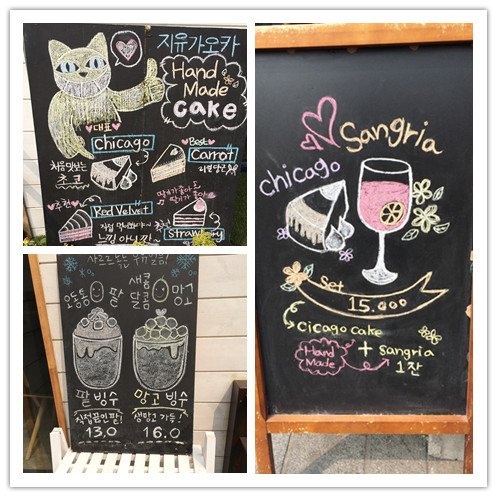 지유가오카
Hand
Made
cake
대표
chicago
처음맛보는
초코
Best
Carrot
추천
Red Velvet
딸기가좋아도
딸기가좋아
Strawberry
Sangria
chicago
Set
15.000
cicago cake
Hand
Made
+ sangria
1잔
사르르녹는
오동통 팥
새콤
달콤 망고
팥빙수
직접쑨팥!
13.0
망고 빙수
생망고 가득!
16.0